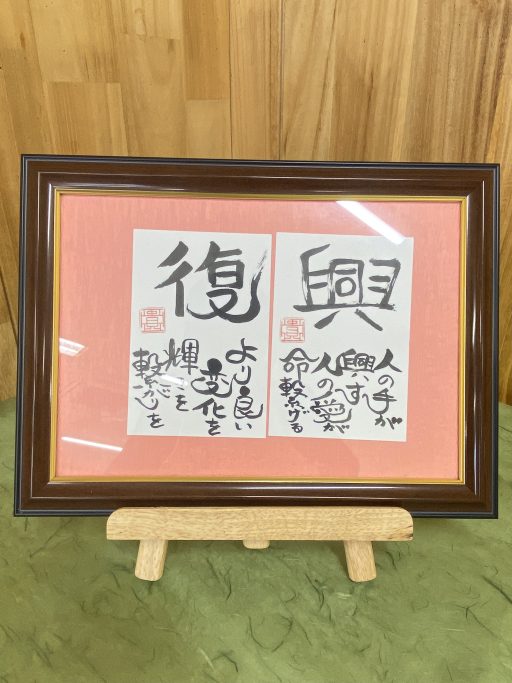 復
より良い
変化を
輝きを
繋がりを
貴
興
人の手が
興す
人の愛が
命繋げる
貴